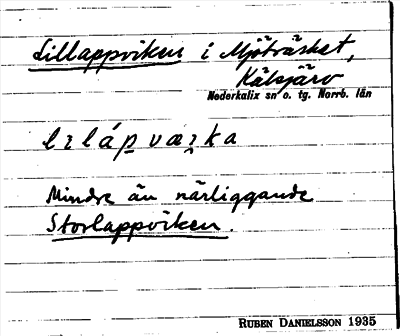 Lillappviken i Mjöträsket,
Kälsjärv
Nederkalix sn o. tg. Norrb. län
Mindre än närliggande
Storlappviken.
RUBEN DANIELSSON 1935